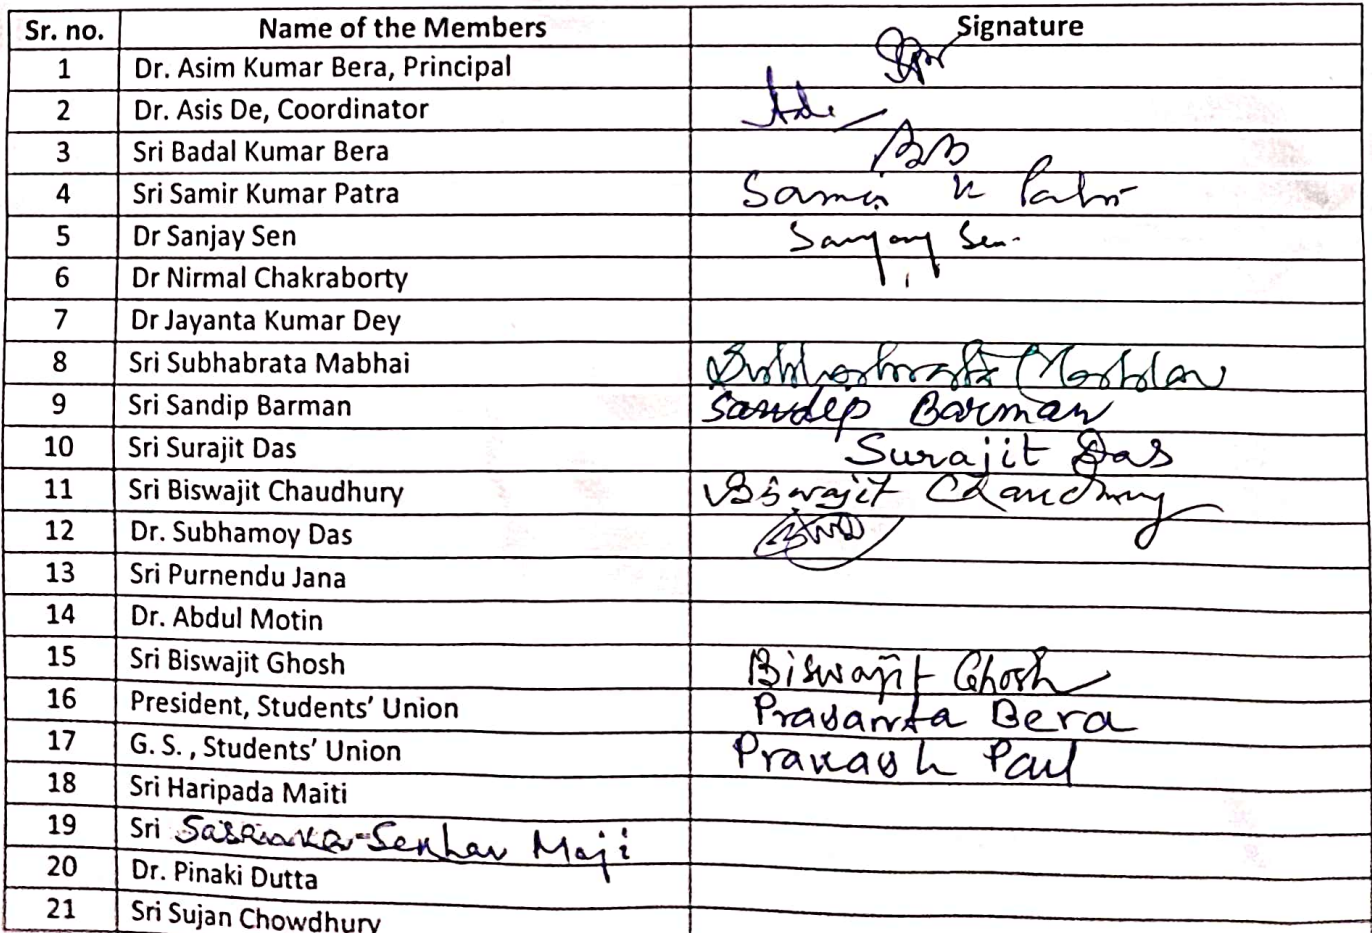 Sr. no. Name of the Members Signature
1 Dr. Asim Kumar Bera, Principal
2 Dr. Asis De, Coordinator
3 Sri Badal Kumar Bera
4 Sri Samir Kumar Patra Samir K Patra
5 Dr Sanjay Sen Sanjay Sen
6 Dr Nirmal Chakraborty
7 Dr Jayanta Kumar Dey
8 Sri Subhabrata Mabhai Subhabrata
9 Sri Sandip Barman Sandip Barman
10 Sri Surajit Das Surajit Das
11 Sri Biswajit Chaudhury Biswajit Chaudhury
12 Dr. Subhamoy Das
13 Sri Purnendu Jana
14 Dr. Abdul Motin
15 Sri Biswajit Ghosh Biswajit Ghosh
16 President, Students' Union Prasanta Bera
17 G. S. , Students' Union Prakash Paul
18 Sri Haripada Maiti
19 Sri Maji
20 Dr. Pinaki Dutta
21 Sri Sujan Chowdhury